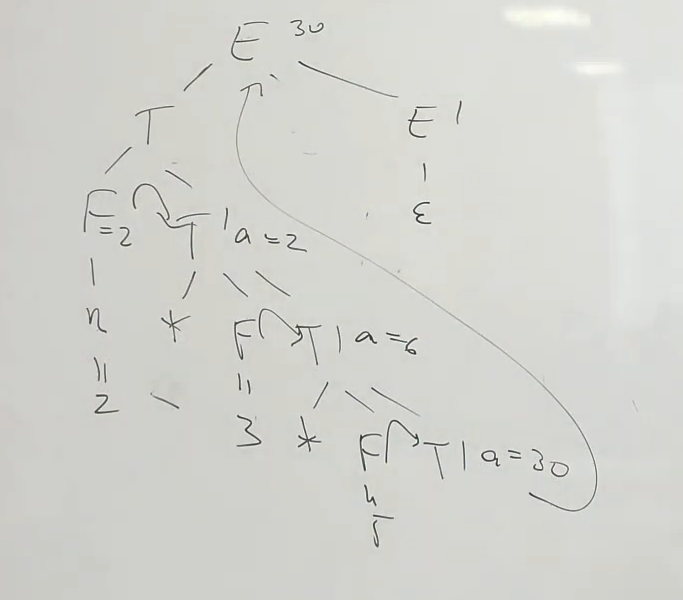 E 30
T E'
ε
F =2 T' a=2
n * F T' a=6
=
2
=
3 * F T' a=30
n
5